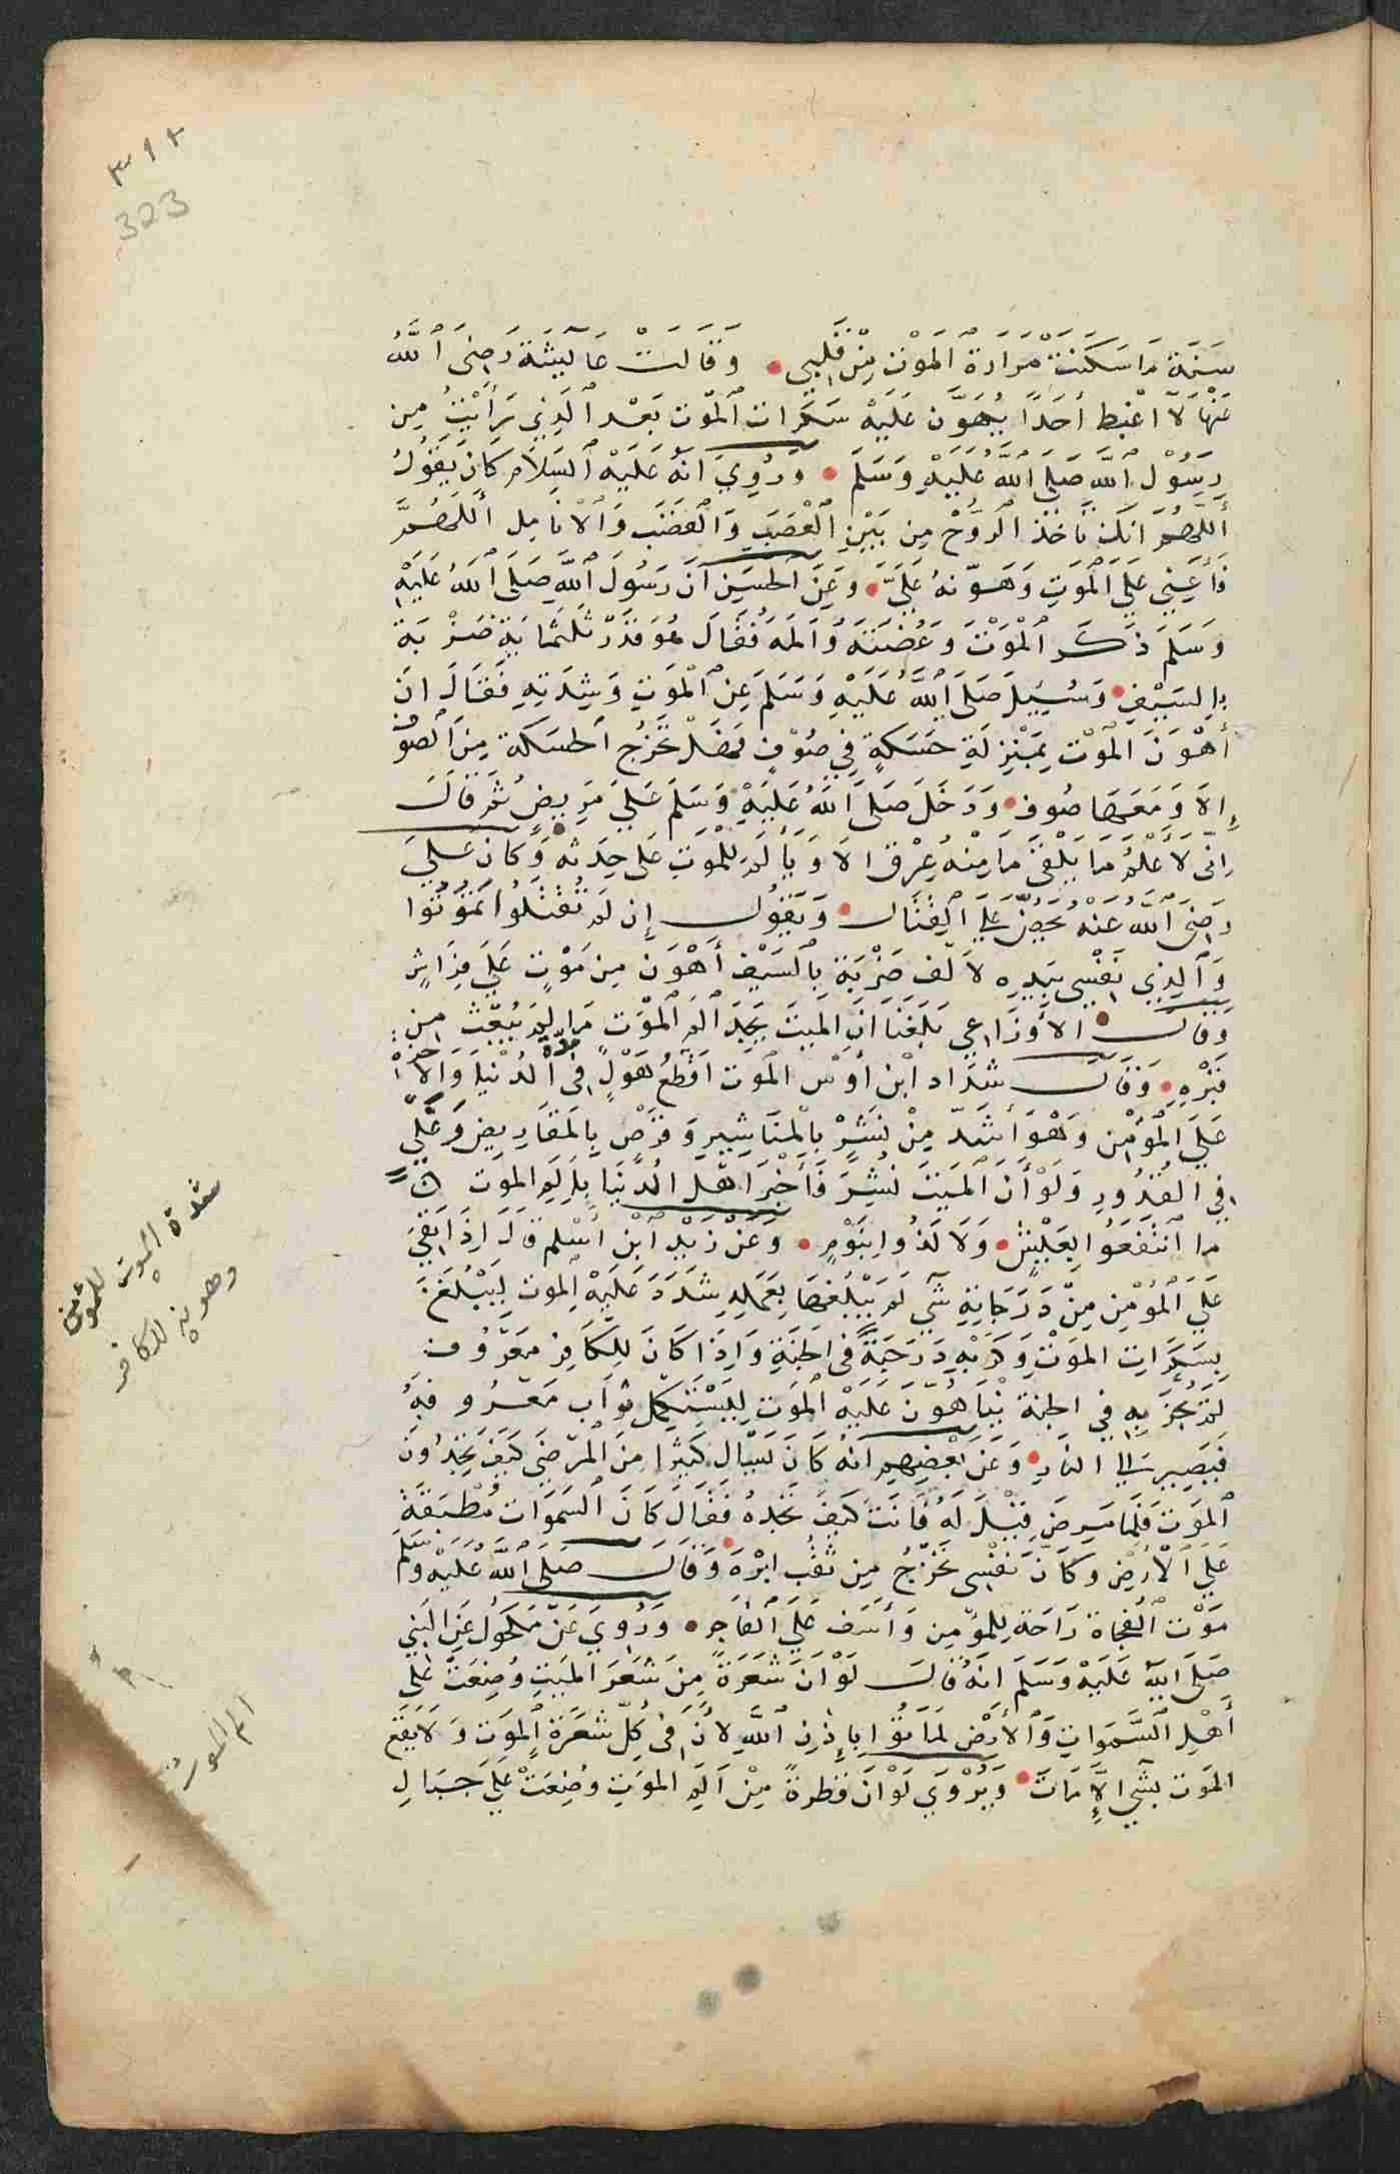 ٣١٢
323
سنة ما سكنت مرارة الموت من قلبي • وقالت عائيشة رضى الله
عنها لا اغبط احدا يهون عليه سكرات الموت بعد الذي رأيت من
رسول الله صلى الله عليه وسلم • وروي انه عليه السلام كان يقول
أللهم انك تأخذ الروح من بين العصب والعضب والانامل أللهم
فأعيني على الموت وهونه على • وعن الحسين أن رسول الله صلى الله عليه
وسلم ذكر الموت وغضته وألمه فقال هو قدر ثلثماية ضربة
بالسيف • وسيل صلى الله عليه وسلم عن الموت وشدته فقال ان
أهون الموت بمنزلة حسكة في صوف فهل تخرج الحسكة من الصوف
إلا ومعها صوف • ودخل صلى الله عليه وسلم على مريض ثم قال
انى لأعلم ما يلقى ما منه عرق الا ويألم للموت على حدته • وكان علي
رضى الله عنه يحض على القتال • ويقول إن لم تقتلوا تموتوا
والذي نفسي بيده لالف ضربة بالسيف أهون من موت على فراش
وقال • الأوزاعي بلغنا ان الميت يجد الم الموت ما لم يبعث من
قبره • وقال شداد ابن أوس الموت افظع هول في الدنيا والآخرة
على المؤمن وهو أشد من نشر بالمناشير وقرص بالمقاريض وغلي
في القدور ولو أن الميت نشر فأخبر اهل الدنيا بألم الموت
ما انتفعوا بعيش • ولا لذوا بنوم • وعن زيد ابن أسلم قال اذا بقي
على المؤمن من درجاته شي لم يبلغها بعمله شدد عليه الموت ليبلغ
بسكرات الموت وكربه درجته في الجنة واذا كان للكافر معروف
لم يجز به في الجنة هون عليه الموت ليستكمل ثواب معروفه
فيصير الى النار • وعن بعضهم انه كان يسال كثيرا من المرضى كيف تجدون
الموت فلما مرض قيل له فانت كيف تجده فقال كان السموات مطبقة
على الأرض وكان نفسي تخرج من ثقب ابرة • وقال صلى الله عليه وسلم
موت الفجاة راحة للمؤمن وأسف على الفاجر • وروي عن مكحول عن النبي
صلى الله عليه وسلم انه قال لو ان شعرة من شعر الميت وضعت على
أهل السموات والأرض لماتوا بإذن الله لان في كل شعرة الموت ولا يقع
الموت بشي الا مات • ويروي لو ان قطرة من الم الموت وضعت على جبال
شدة الموت للمؤمن
وهونه للكافر
الم الموت